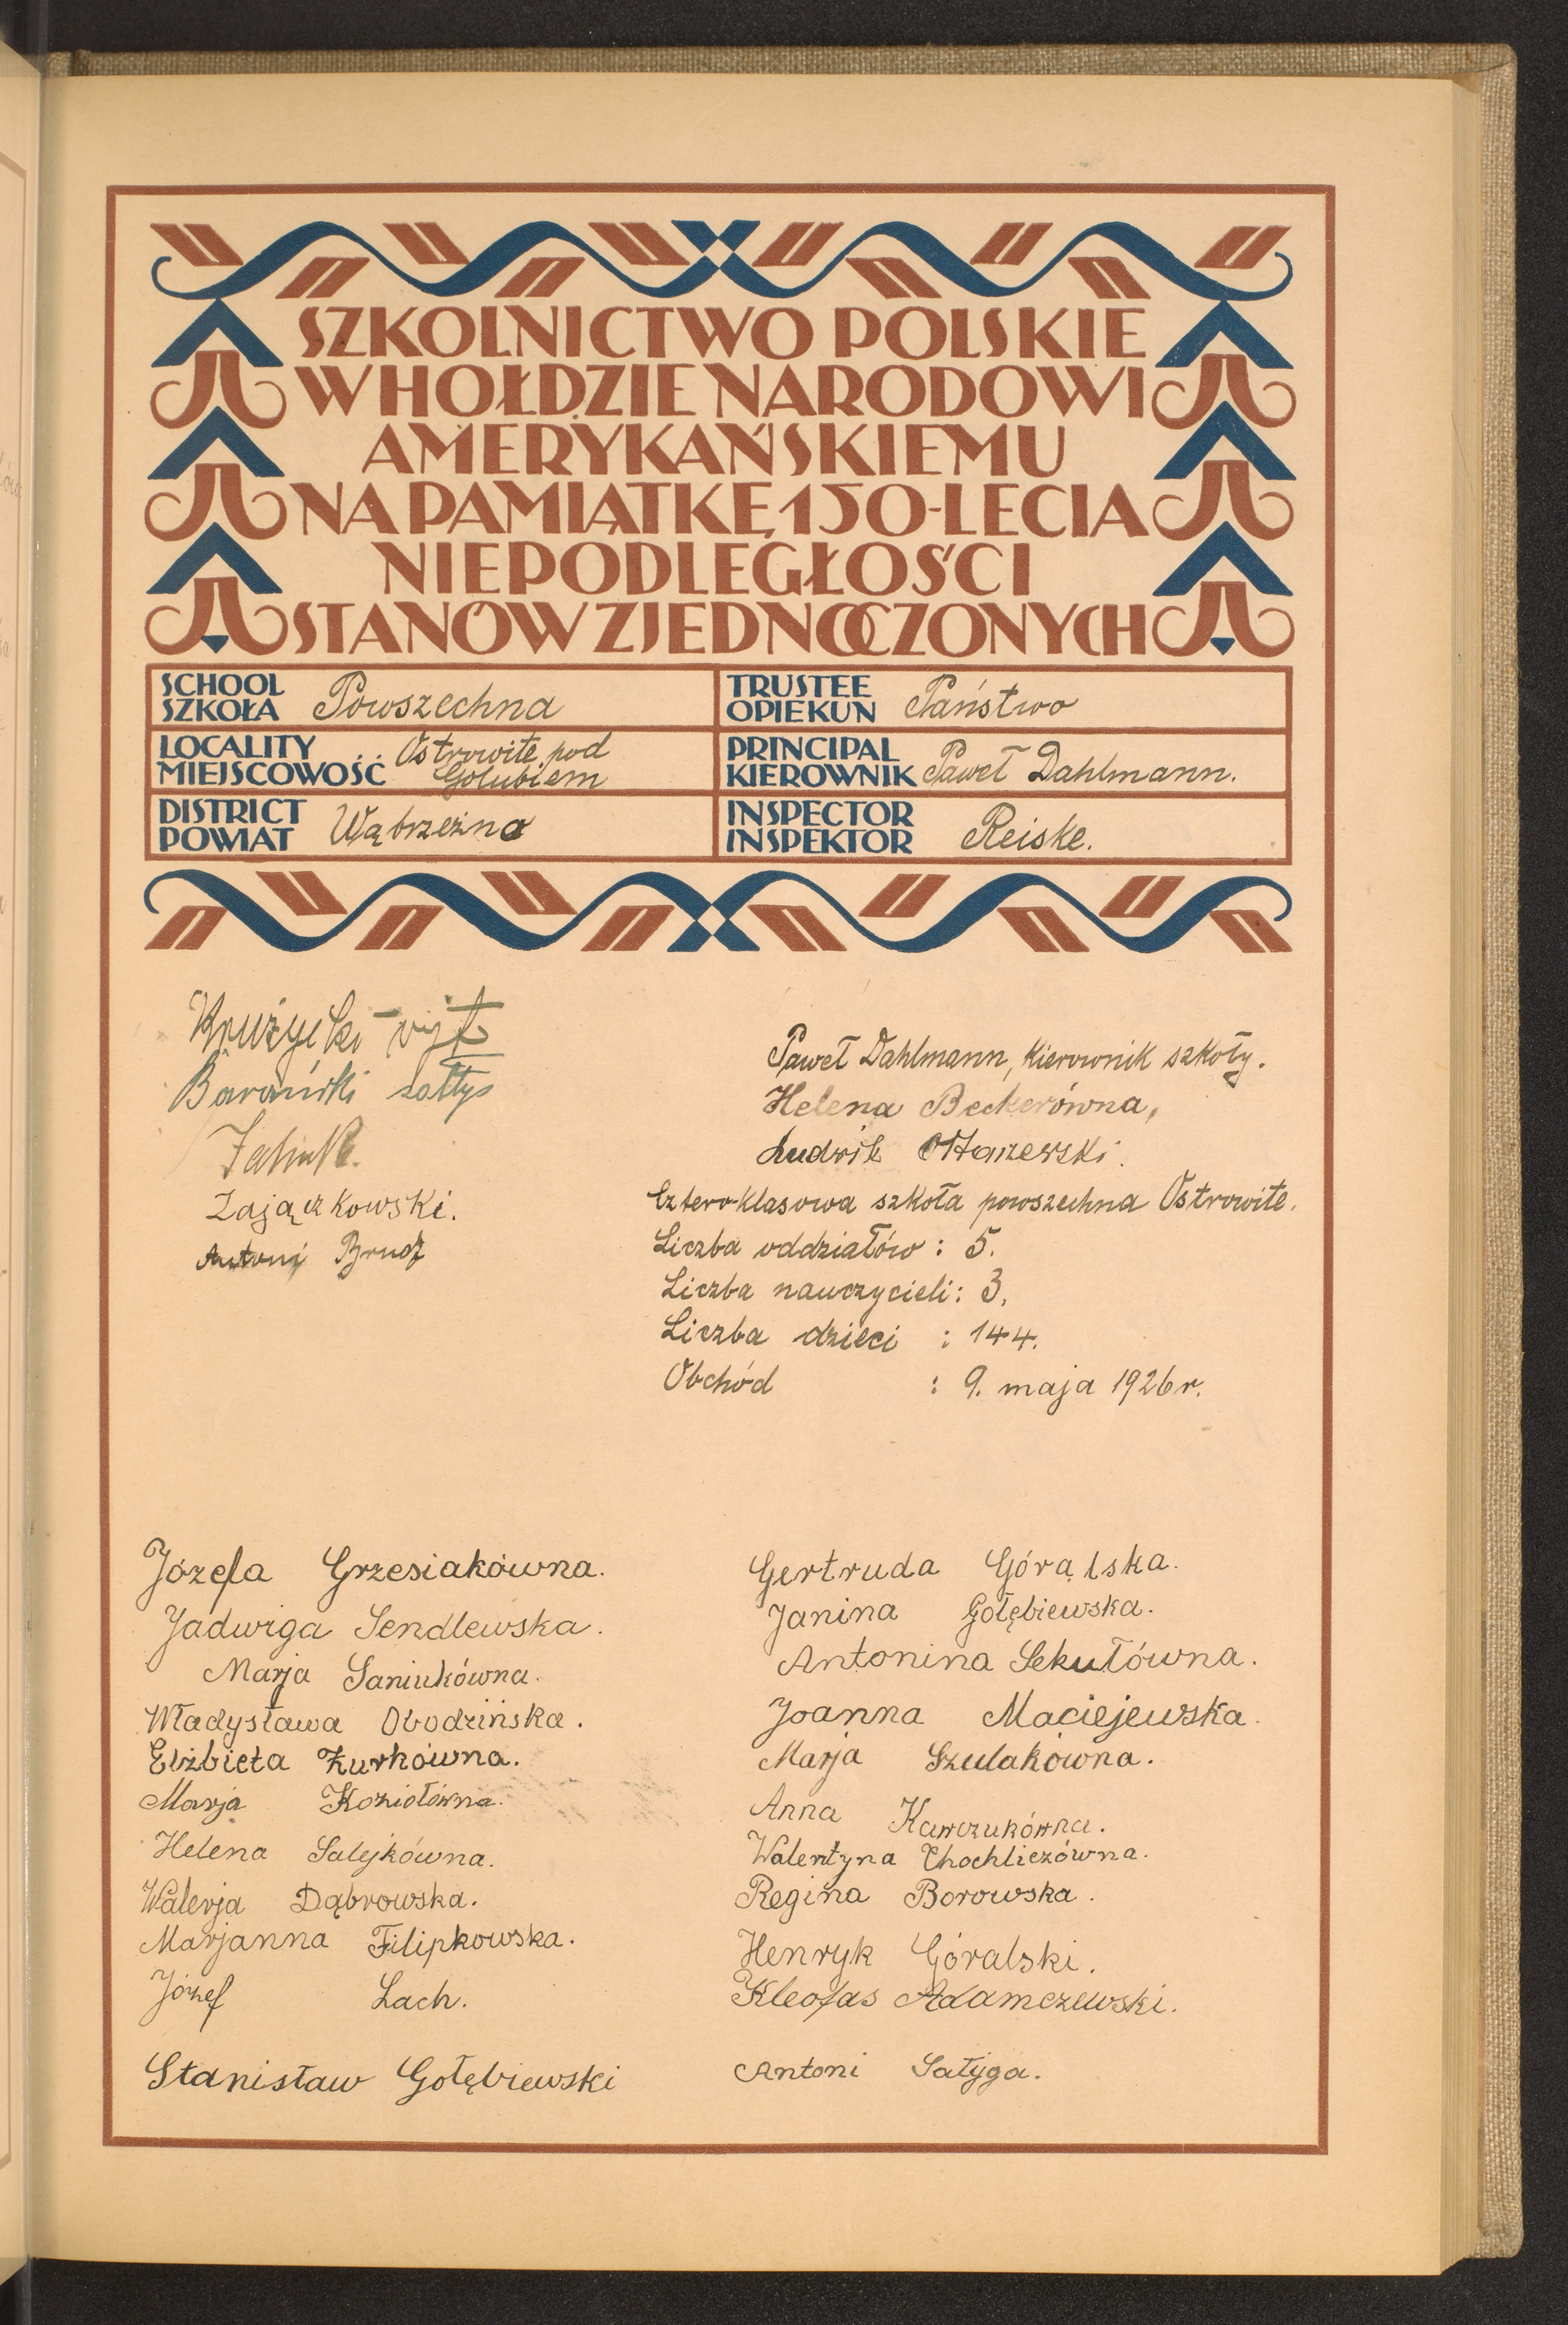 SZKOLNICTWO POLSKIE
W HOŁDZIE NARODOWI
AMERYKAŃSKIEMU
NA PAMIĄTKĘ 150-LECIA
NIEPODLEGŁOŚCI
STANÓW ZJEDNOCZONYCH
SCHOOL
SZKOŁA Powszechna
TRUSTEE
OPIEKUN Państwo
LOCALITY
MIEJSCOWOŚĆ Ostrowite pod
Golubiem
PRINCIPAL
KIEROWNIK Paweł Dahlmann.
DISTRICT
POWIAT Wąbrzeźno
INSPECTOR
INSPEKTOR Reiske.
Krużycki wójt
Barański sołtys
Zajączkowski.
Antoni Brudz
Paweł Dahlmann, kierownik szkoły.
Helena Beckerówna,
Ludwik Ołtarzewski.
Cztero-klasowa szkoła powszechna Ostrowite.
Liczba oddziałów: 5.
Liczba nauczycieli: 3,
Liczba dzieci : 144.
Obchód : 9. maja 1926 r.
Józefa Grzesiakówna.
Jadwiga Sendlewska.
Marja Saniukówna.
Władysława Obodzińska.
Elżbieta Żurkówna.
Marja Koziołówna.
Helena Salejkówna.
Walerja Dąbrowska.
Marjanna Filipkowska.
Józef Lach.
Stanisław Gołębiewski
Gertruda Góralska.
Janina Gołębiewska.
Antonina Sekułówna.
Joanna Maciejewska.
Marja Szulakówna.
Anna Kawczukówna.
Walentyna Chochliczówna.
Regina Borowska.
Henryk Góralski.
Kleofas Adamczewski.
Antoni Sałyga.